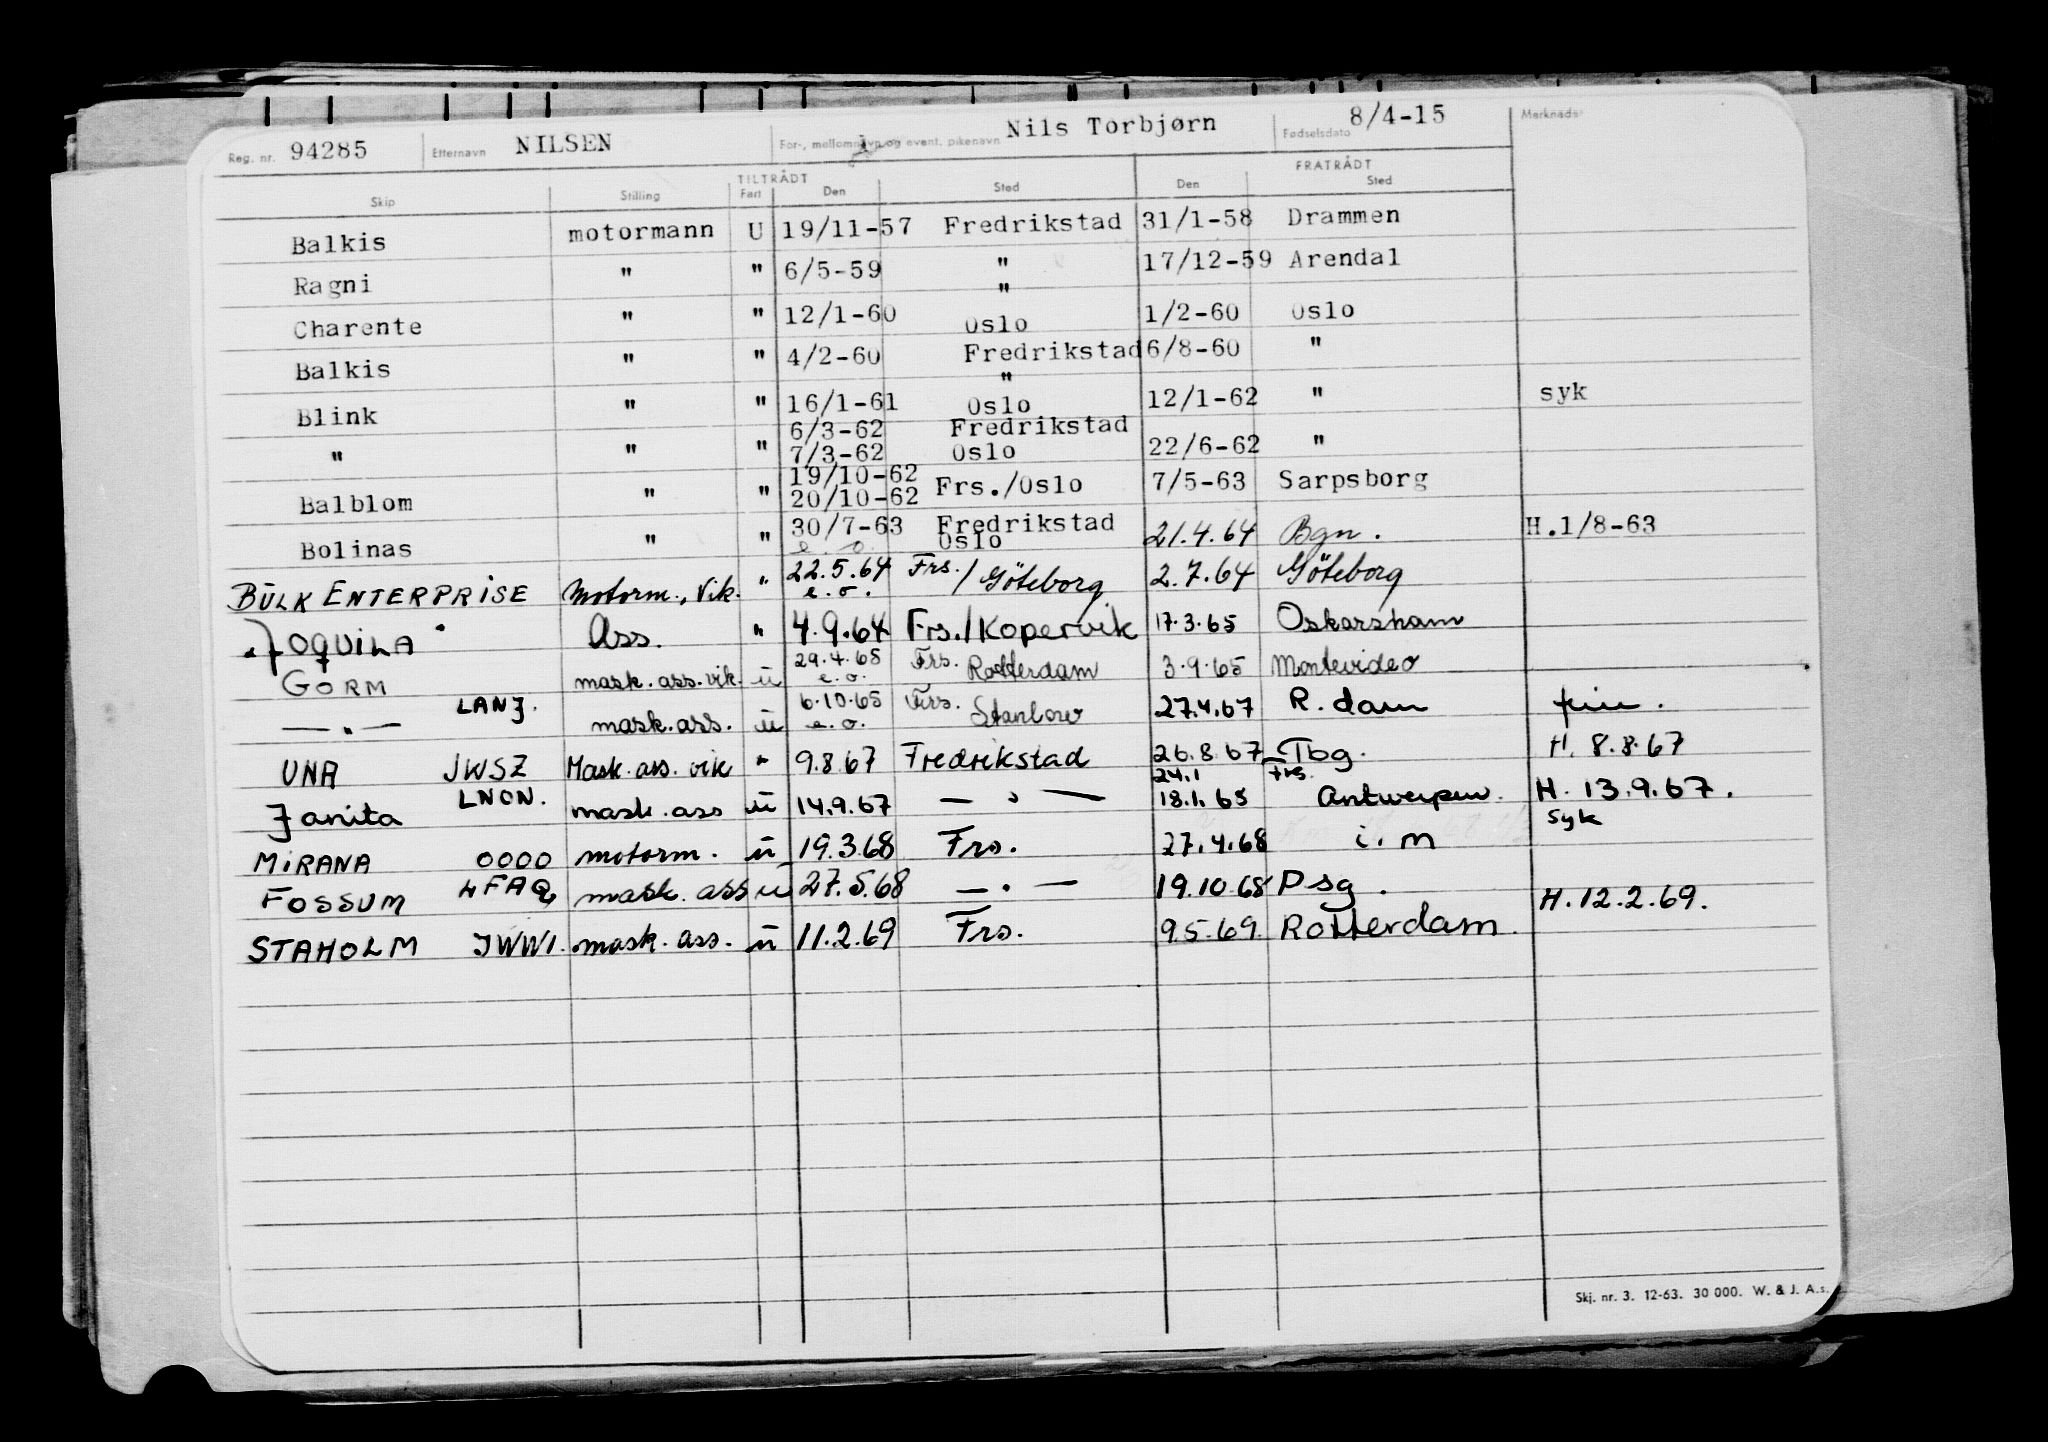 Reg. nr. 94285 Etternavn NILSEN For-, mellomnavn og event. pikenavn Nils Torbjørn Fødselsdato 8/4-15 Merknader
TILTRÅDT FRATRÅDT
Skip Stilling Fart Den Sted Den Sted
Balkis motormann U 19/11-57 Fredrikstad 31/1-58 Drammen
Ragni " " 6/5-59 " 17/12-59 Arendal
"
Charente " " 12/1-60 Oslo 1/2-60 Oslo
Balkis " " 4/2-60 Fredrikstad 6/8-60 "
"
Blink " " 16/1-61 Oslo 12/1-62 " syk
6/3-62 Fredrikstad
" " " 7/3-62 Oslo 22/6-62 "
19/10-62
Balblom " " 20/10-62 Frs./Oslo 7/5-63 Sarpsborg
30/7-63 Fredrikstad
Bolinas " " e.o. Oslo 21.4.64 Bgn. H.1/8-63
BULK ENTERPRISE Motorm., Vik. " 22.5.64 Frs./Göteborg 2.7.64 Göteborg
e.o.
OQUILA Ass. " 4.9.64 Frs./Kopervik 17.3.65 Oskarshamn
GORM mask.ass.vik. u 29.4.65 Frs. Rotterdam 3.9.65 Montevideo
e.o.
— " — LANJ. mask.ass. u 6.10.65 Frs. Stanlow 27.4.67 R.dam
e.o.
UNA JWSZ Mask.ass.vik " 9.8.67 Fredrikstad 26.8.67 Tbg. H. 8.8.67
24.1 Frs.
Janita LNON. mask.ass u 14.9.67 — " — 18.1.68 Antwerpen. H. 13.9.67.
syk
MIRANA OOOO motorm. u 19.3.68 Frs. 27.4.68 i.m
FOSSUM LFAQ mask.ass u 27.5.68 — " — 19.10.68 Psg.
STAHOLM JWWI. mask.ass. u 11.2.69 Frs. 9.5.69. Rotterdam. H.12.2.69.
Skj. nr. 3. 12-63. 30 000. W. & J. A.s.